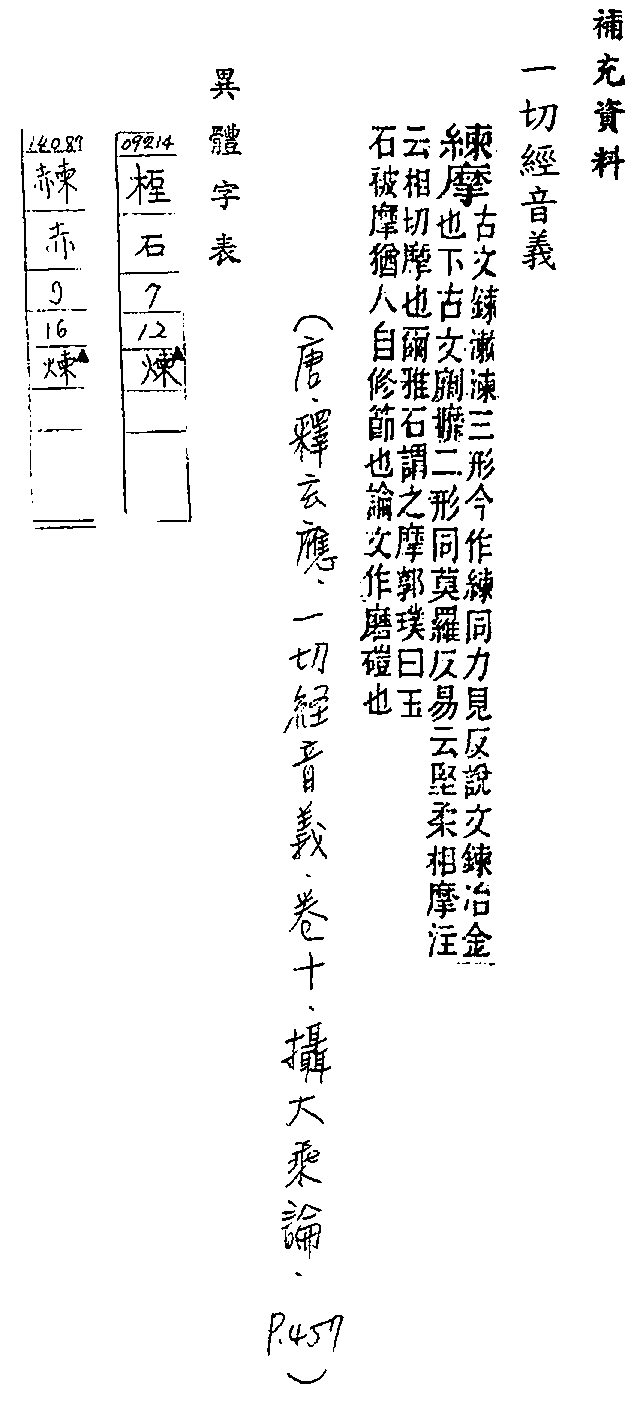 補充資料
一切經音義
練摩古文鍊漱湅三形今作練同力見反說文鍊冶金
也下古文劘攠二形同莫羅反易云堅柔相摩注
云相切摩也爾雅石謂之摩郭璞曰玉
石被摩猶人自修節也論文作磨磑也
(唐．釋玄應．一切經音義．卷十．攝大乘論．P.457)
異體字表
09214
石
7
12
煉▲
14087
赤
9
16
煉▲